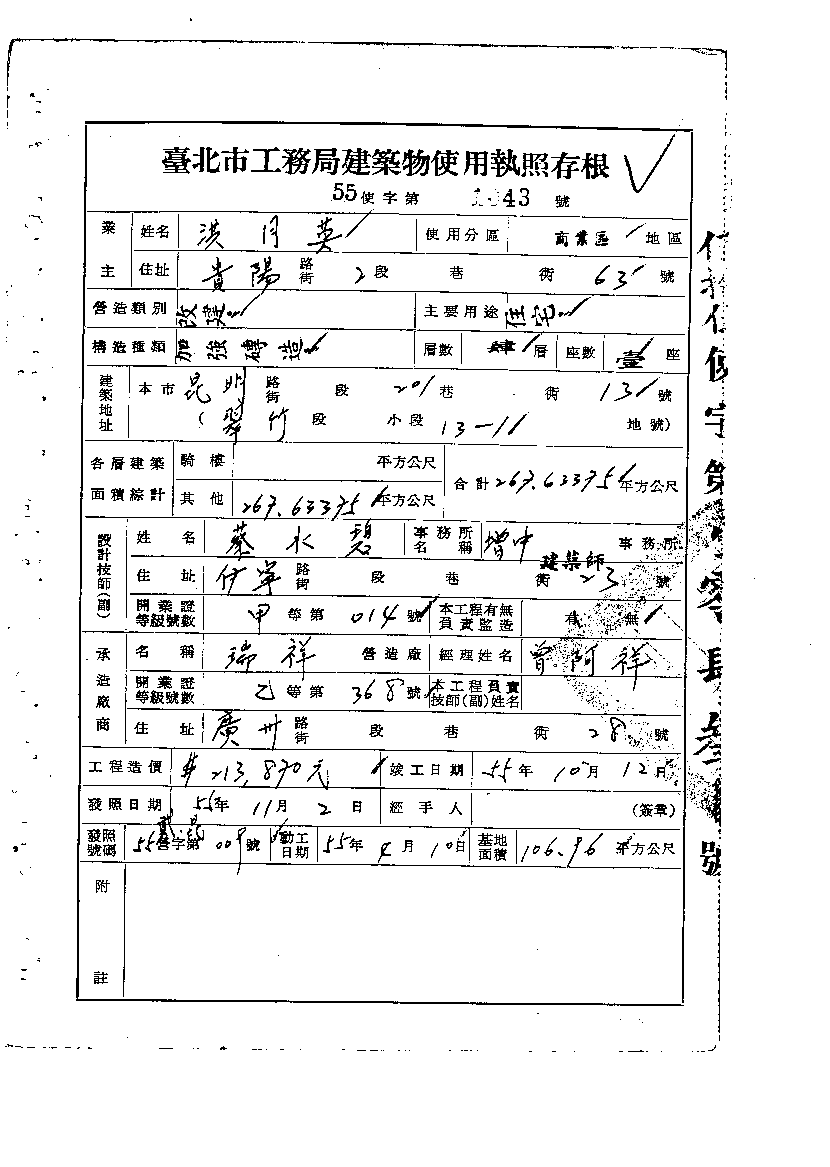 臺北市工務局建築物使用執照存根
55使字第 1 43 號
業主 姓名 洪月英 使用分區 商業區 地區
住址 貴陽 路街 2段 巷 街 63 號
營造類別 改建 主要用途 住宅
構造種類 加強磚造 層數 肆層 座數 壹座
建築地址 本市 昆明 路街 段 201巷 街 13 號
(翠竹 段 小段 13-11 地號)
各層建築面積綜計 騎樓 平方公尺 合計 267.63375 平方公尺
其他 267.63375 平方公尺
設計技師(副) 姓名 蔡水碧 事務所名稱 增中建築師 事務所
住址 伊寧 路街 段 巷 街 23 號
開業證等級號數 甲等第 014 號 本工程有無負責監造 有 無
承造廠商 名稱 瑞祥 營造廠 經理姓名 曾阿祥
開業證等級號數 乙等第 368 號 本工程負責技師(副)姓名
住址 廣州 路街 段 巷 街 28 號
工程造價 213,870元 竣工日期 55年10月12日
發照日期 55年11月2日 經手人 (簽章)
發照號碼 55營字第 009 號 動工日期 55年4月10日 基地面積 106.96 平方公尺
附註
使字第 零 號